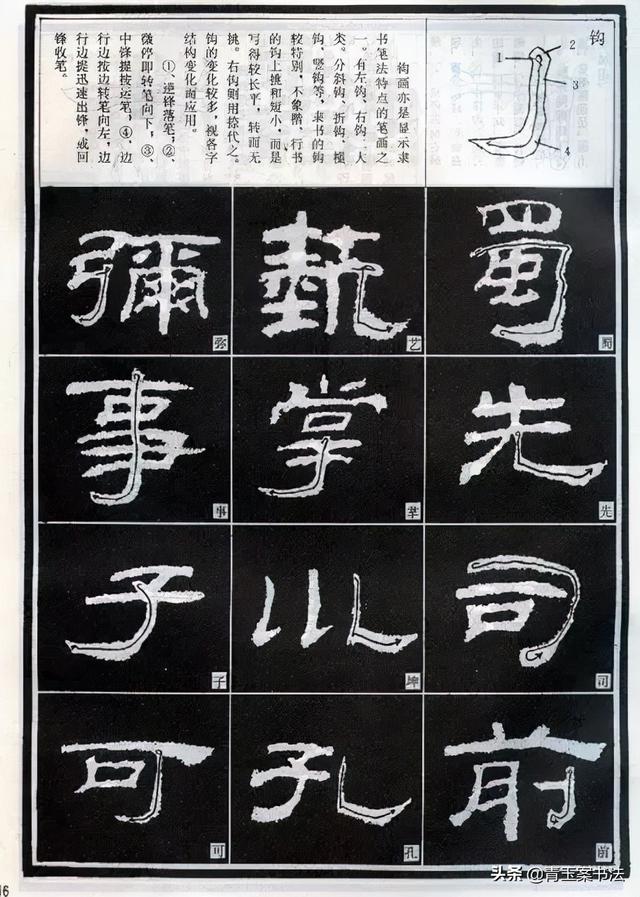 钩
1
2
3
4
钩画亦是显示隶
书笔法特点的笔画之
一。有左钩、右钩二大
类。分斜钩、折钩、横
钩、竖钩等，隶书的钩
较特别，不象楷、行书
的钩上挑和短小，而是
写得较长平，转而无
挑。右钩则用捺代之。
钩的变化较多，视各字
结构变化而应用。
①、逆锋落笔；②、
微停即转笔向下，③、
中锋提按运笔；④、边
行边按边转笔向左，边
行边提迅速出锋，或回
锋收笔。
蜀
蜀
艺
彌
弥
先
先
掌
掌
事
事
司
司
坤
子
子
前
前
孔
孔
可
可
16
头条 @青玉案书法